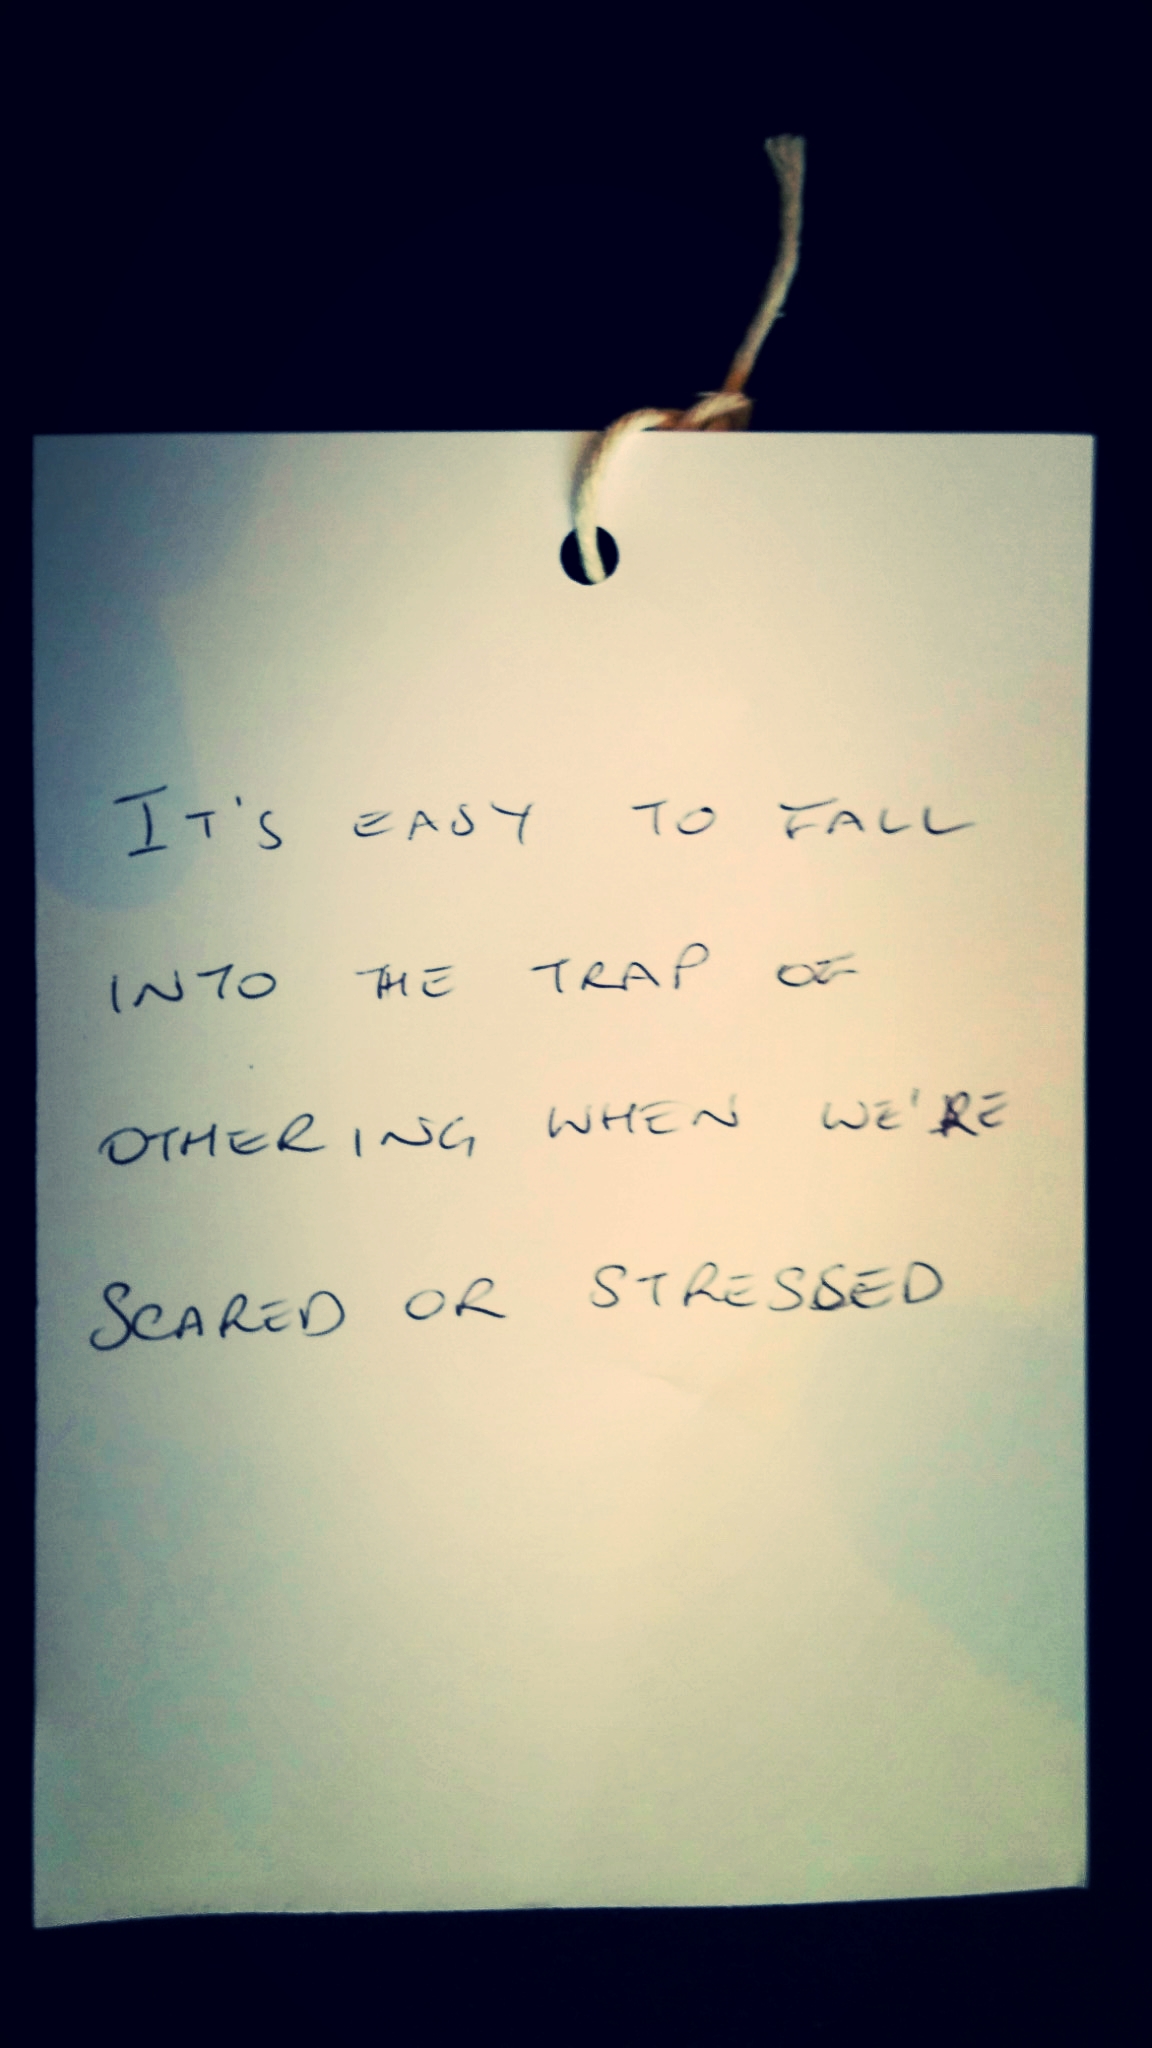 IT'S EASY TO FALL
INTO THE TRAP OF
OTHERING WHEN WE'RE
SCARED OR STRESSED